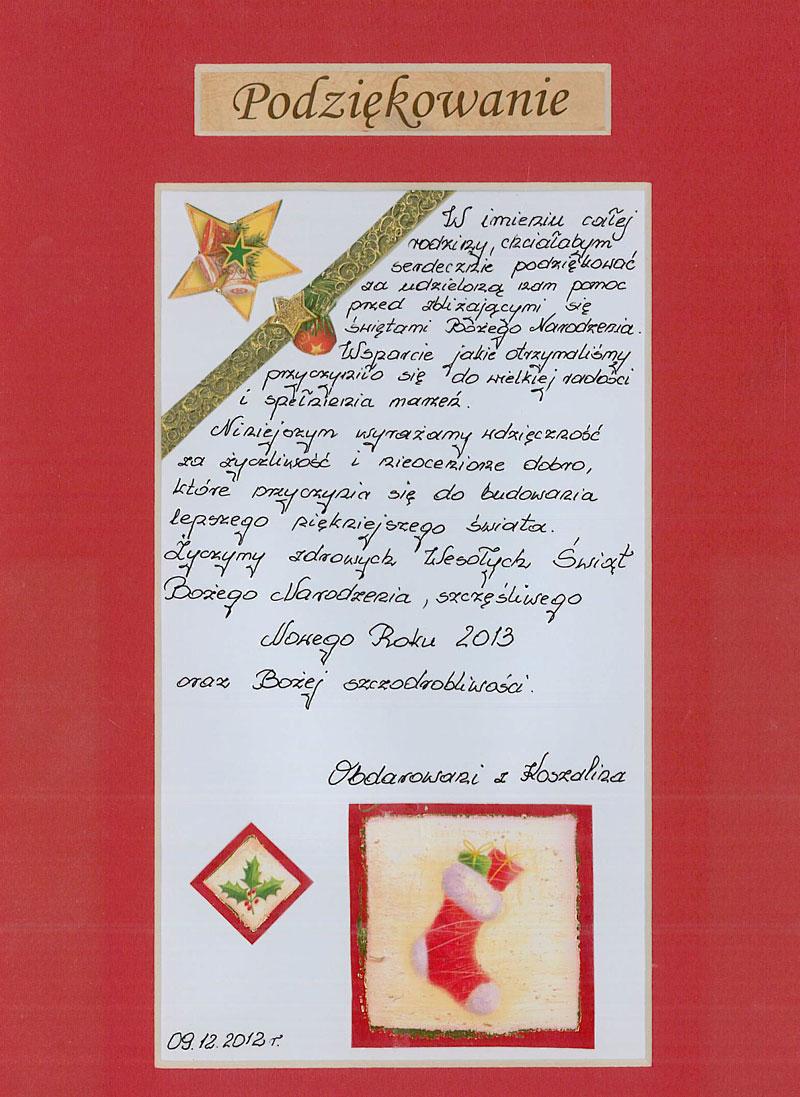 Podziękowanie
W imieniu całej
rodziny, chciałabym
serdecznie podziękować
za udzieloną nam pomoc
przed zbliżającymi się
świętami Bożego Narodzenia.
Wsparcie jakie otrzymaliśmy
przyczyniło się do wielkiej radości
i spełnienia marzeń.
Niniejszym wyrażamy wdzięczność
za życzliwość i nieocenione dobro,
które przyczynia się do budowania
lepszego piękniejszego świata.
Życzymy zdrowych Wesołych Świąt
Bożego Narodzenia, szczęśliwego
Nowego Roku 2013
oraz Bożej szczodrobliwości.
Obdarowani z Koszalina
09.12.2012 r.